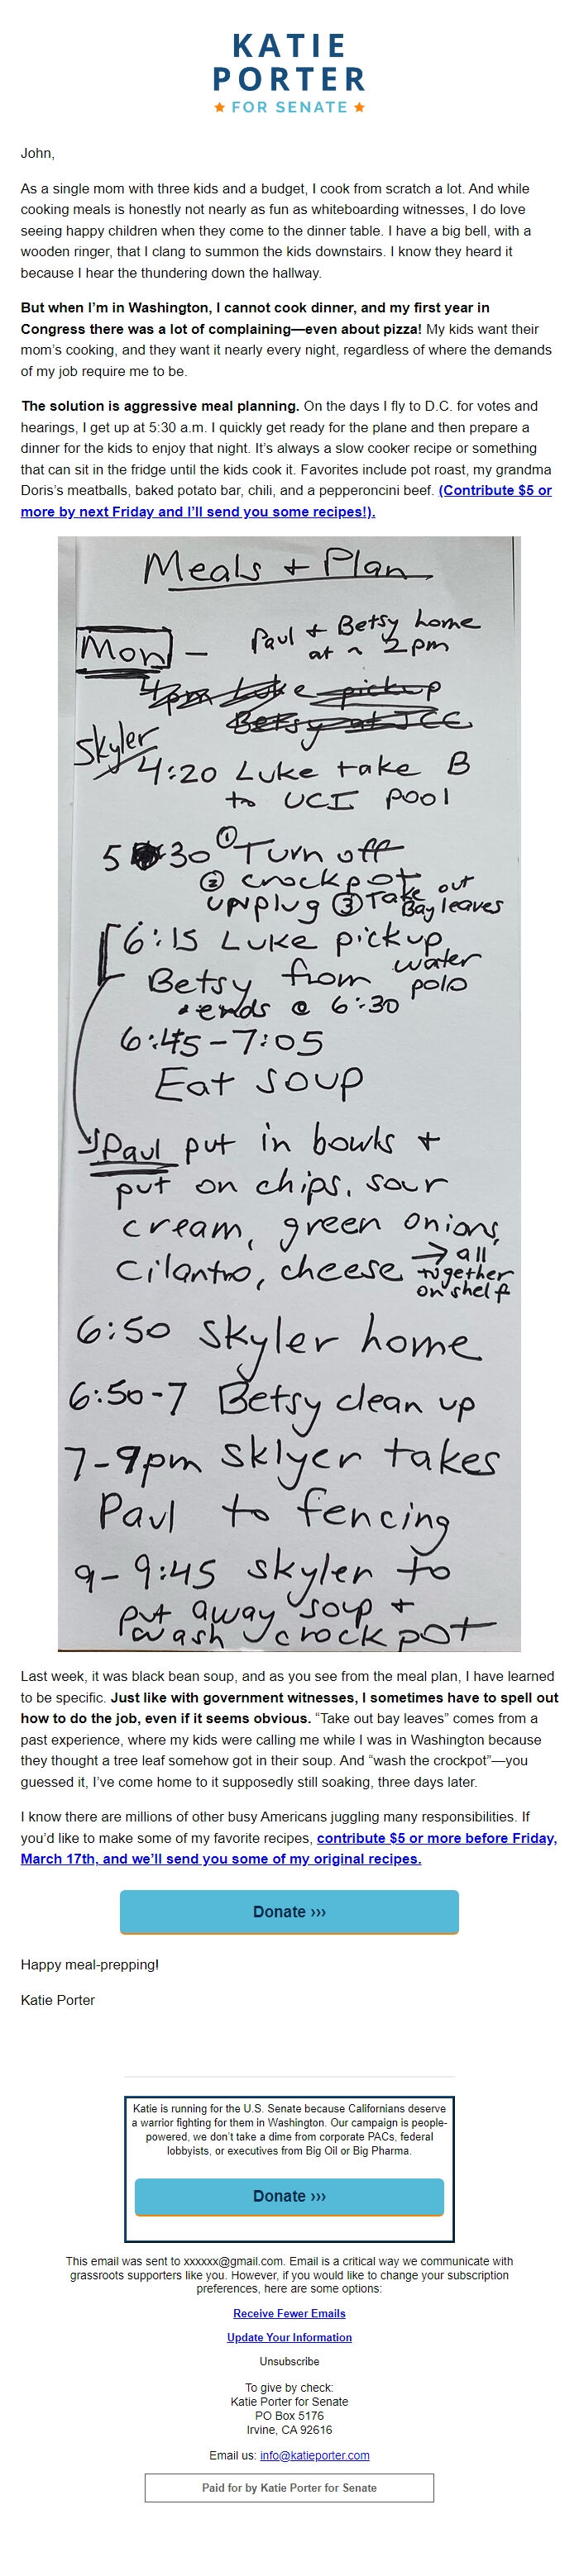 KATIE
PORTER
★ FOR SENATE ★
John,
As a single mom with three kids and a budget, I cook from scratch a lot. And while
cooking meals is honestly not nearly as fun as whiteboarding witnesses, I do love
seeing happy children when they come to the dinner table. I have a big bell, with a
wooden ringer, that I clang to summon the kids downstairs. I know they heard it
because I hear the thundering down the hallway.
But when I'm in Washington, I cannot cook dinner, and my first year in
Congress there was a lot of complaining—even about pizza! My kids want their
mom's cooking, and they want it nearly every night, regardless of where the demands
of my job require me to be.
The solution is aggressive meal planning. On the days I fly to D.C. for votes and
hearings, I get up at 5:30 a.m. I quickly get ready for the plane and then prepare a
dinner for the kids to enjoy that night. It's always a slow cooker recipe or something
that can sit in the fridge until the kids cook it. Favorites include pot roast, my grandma
Doris's meatballs, baked potato bar, chili, and a pepperoncini beef. (Contribute $5 or
more by next Friday and I'll send you some recipes!).
Meals + Plan
Mon — Paul + Betsy home
at ~ 2pm
4pm Luke pickup
Betsy at JCC
Skyler
4:20 Luke take B
to UCI pool
5 30 ① Turn off
② crockpot
unplug ③ Take out
Bay leaves
6:15 Luke pickup
Betsy from water
polo
• ends @ 6:30
6:45-7:05
Eat soup
Paul put in bowls +
put on chips, sour
cream, green onions,
cilantro, cheese → all
together
on shelf
6:50 skyler home
6:50-7 Betsy clean up
7-9pm sklyer takes
Paul to fencing
9-9:45 skyler to
put away soup +
wash crockpot
Last week, it was black bean soup, and as you see from the meal plan, I have learned
to be specific. Just like with government witnesses, I sometimes have to spell out
how to do the job, even if it seems obvious. “Take out bay leaves” comes from a
past experience, where my kids were calling me while I was in Washington because
they thought a tree leaf somehow got in their soup. And “wash the crockpot”—you
guessed it, I've come home to it supposedly still soaking, three days later.
I know there are millions of other busy Americans juggling many responsibilities. If
you'd like to make some of my favorite recipes, contribute $5 or more before Friday,
March 17th, and we'll send you some of my original recipes.
Donate ›››
Happy meal-prepping!
Katie Porter
Katie is running for the U.S. Senate because Californians deserve
a warrior fighting for them in Washington. Our campaign is people-
powered, we don't take a dime from corporate PACs, federal
lobbyists, or executives from Big Oil or Big Pharma.
Donate ›››
This email was sent to xxxxxx@gmail.com. Email is a critical way we communicate with
grassroots supporters like you. However, if you would like to change your subscription
preferences, here are some options:
Receive Fewer Emails
Update Your Information
Unsubscribe
To give by check:
Katie Porter for Senate
PO Box 5176
Irvine, CA 92616
Email us: info@katieporter.com
Paid for by Katie Porter for Senate